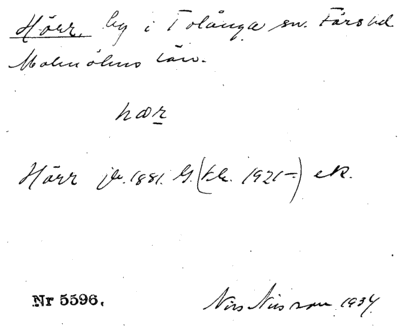 Hörr, by i Tolånga sn. Färs hd
Malmöhus län.
hær
Hörr jb. 1881. G. (t.k. 1921-) ek.
Nr 5596. Nils Nilsson 1934.